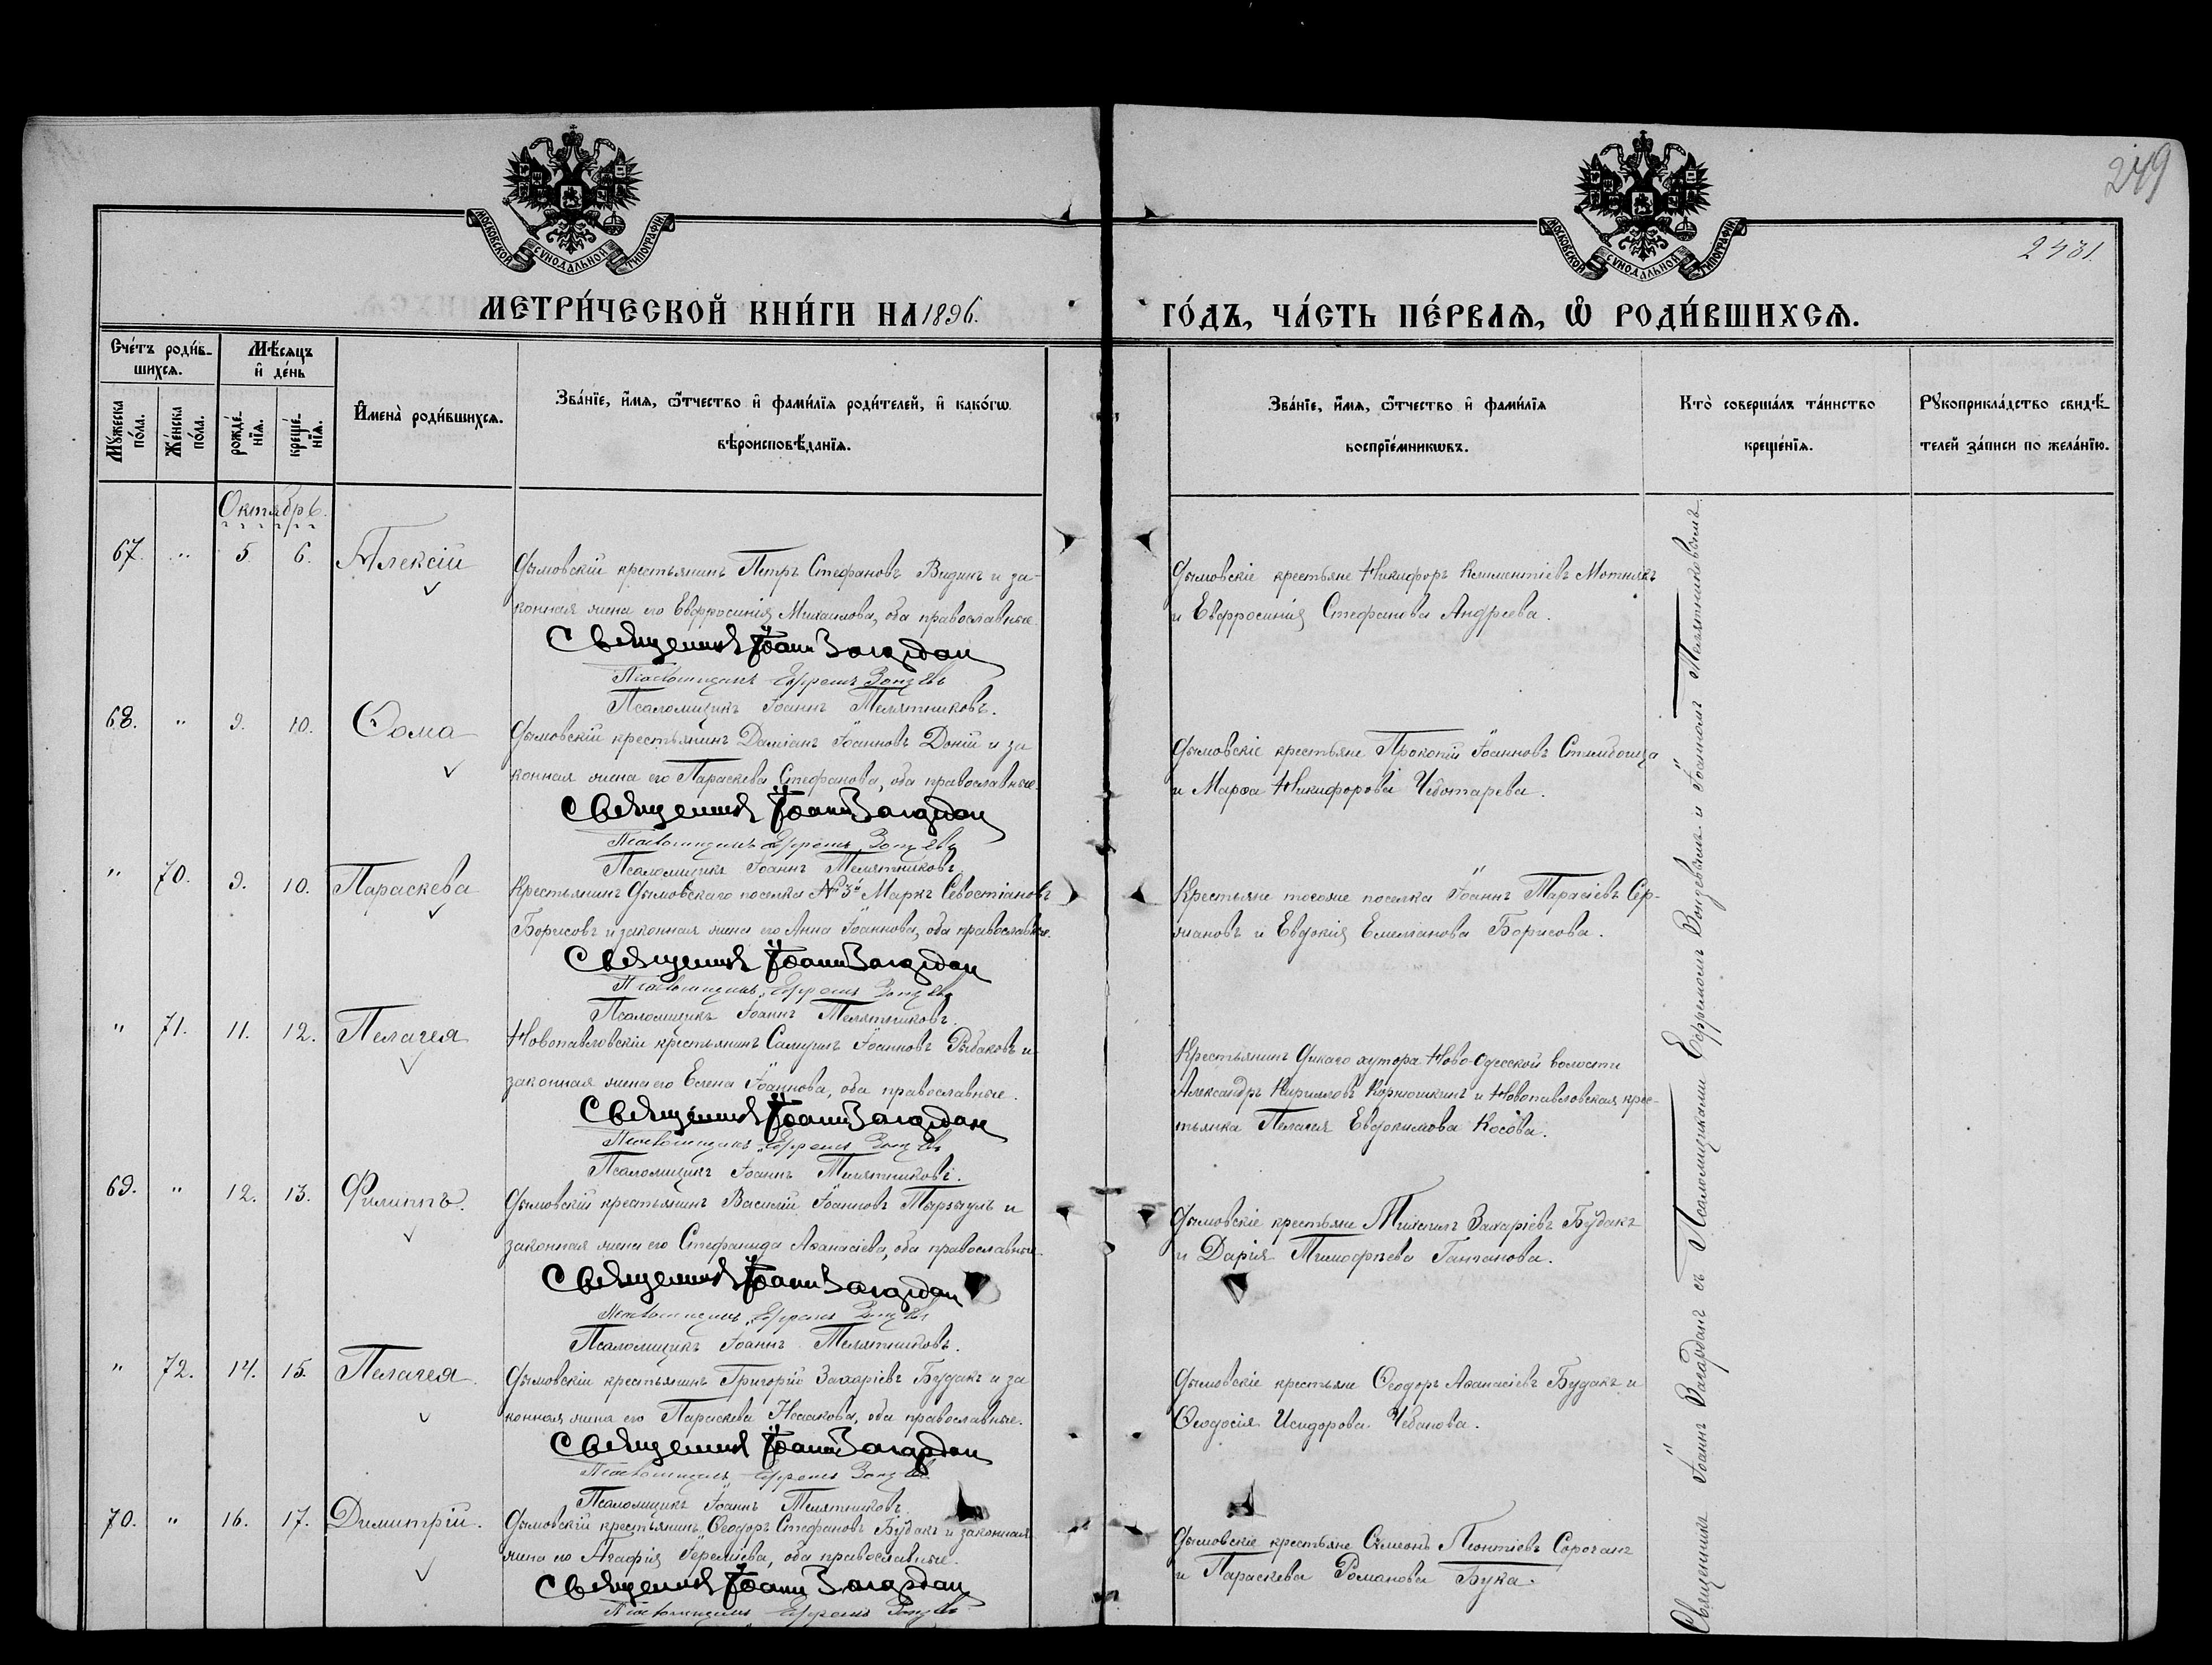 249
2431.
МОСКОВСКОЙ СѴНОДАЛЬНОЙ ТИПОГРАФІИ
МОСКОВСКОЙ СѴНОДАЛЬНОЙ ТИПОГРАФІИ
МЕТРИ́ЧЕСКОЙ КНИ́ГИ НА 1896. ГО́ДЪ, ЧА́СТЬ ПЕ́РВАЯ, Ѽ РОДИ́ВШИХСѦ.
Сче́тъ роди́в-
шихсѧ.
Мꙋ́жеска по́ла.
Же́нска по́ла.
Мѣ́сяцъ
и҆ де́нь
рожде́-
нїѧ.
креще́-
нїѧ.
И҆мена̀ роди́вшихсѧ.
Зва́нїе, и҆́мѧ, ѻ҆́тчество и҆ фами́лїѧ роди́телей, и҆ како́гѡ
вѣроисповѣ́данїѧ.
Зва́нїе, и҆́мѧ, ѻ҆́тчество и҆ фами́лїѧ
воспрїе́мникѡвъ.
Кто̀ соверша́лъ та́инство
креще́нїѧ.
Рꙋкоприкла́дство свидѣ́-
телей за́писи по жела́нїю.
Октябрь.
67. " 5 6. Алексій
Дымовскій крестьянинъ Петръ Стефановъ Видикъ и за-
конная жена его Евфросинія Михаилова, оба православные.
Священникъ Іоаннъ Вагардан
Псаломщикъ Ефремъ
Псаломщикъ Іоаннъ Телятниковъ.
Дымовскіе крестьяне Никифоръ Климентіевъ Мотнякъ
и Евфросинія Стефанова Андреева.
68. " 9. 10. Ѳома
Дымовскій крестьянинъ Даміанъ Іоанновъ Доній и за
конная жена его Параскева Стефанова, оба православные.
Священникъ Іоаннъ Вагардан
Псаломщикъ Ефремъ
Псаломщикъ Іоаннъ Телятниковъ
Дымовскіе крестьяне Прокопій Іоанновъ
и Марѳа Никифорова Чеботарева.
" 70. 9. 10. Параскева
Крестьянинъ Дымовскаго поселка № 3й Маркъ Севостіановъ
Борисовъ и законная жена его Анна Іоаннова, оба православные.
Священникъ Іоаннъ Вагардан
Псаломщикъ Ефремъ
Псаломщикъ Іоаннъ Телятниковъ.
Крестьяне тогоже поселка Іоаннъ Тарасіевъ Сер-
жановъ и Евдокія Емеліанова Борисова.
" 71. 11. 12. Пелагея
Новопавловскій крестьянинъ Самуилъ Іоанновъ Рыбаковъ и
законная жена его Елена Іоаннова, оба православные.
Священникъ Іоаннъ Вагардан
Псаломщикъ Ефремъ
Псаломщикъ Іоаннъ Телятниковъ.
Крестьянинъ Дикаго хутора Ново-Одесской волости
Александръ Кирилловъ Корнюшкинъ и Новопавловская крес-
тьянка Пелагія Евдокимова Косова.
69. " 12. 13. Филиппъ.
Дымовскій крестьянинъ Василій Іоанновъ Тырзыулъ и
законная жена его Стефанида Аѳанасіева, оба православные.
Священникъ Іоаннъ Вагардан
Псаломщикъ Ефремъ
Псаломщикъ Іоаннъ Телятниковъ.
Дымовскіе крестьяне Михаилъ Захаріевъ Будакъ
и Дарія Тимофѣева Гайтанова.
" 72. 14. 15. Пелагея.
Дымовскій крестьянинъ Григорій Захаріевъ Будакъ и за
конная жена его Параскева Исаакова, оба православные.
Священникъ Іоаннъ Вагардан
Псаломщикъ Ефремъ
Псаломщикъ Іоаннъ Телятниковъ
Дымовскіе крестьяне Ѳеодоръ Аѳанасіевъ Будакъ и
Ѳеодосія Исидорова Чебанова.
70. " 16. 17. Димитрій.
Дымовскій крестьянинъ Ѳеодоръ Стефановъ Будакъ и законная
жена его Агафія Іереміева, оба православные.
Священникъ Іоаннъ Вагардан
Псаломщикъ Ефремъ
Дымовскіе крестьяне Симеонъ Леонтіевъ Сорочанъ
и Параскева Романова Бука.
Священникъ Іоаннъ Вагарданъ съ Псаломщиками Ефремомъ и Іоанномъ Телятниковымъ